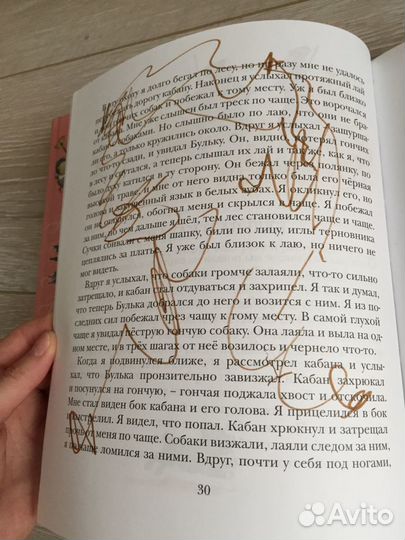 эту охоту я долго бегал по лесу, но ни разу мне не удалось
дорогу кабану. Наконец я услыхал протяжный лай
собак и побежал к тому месту. Уж я был близко
Мне уже слышен был треск по чаще. Это ворочался
с собаками. Но слышно было по лаю, что они не бра-
его, а только кружились около. Вдруг я услыхал — зашурша-
ло что-то сзади, и увидал Бульку. Он, видно, потерял гончих
в лесу и спутался, а теперь слышал их лай и так же, как я, что
было духу катил в ту сторону. Он бежал через полянку, по
высокой траве, и мне от него видна только была его чёрная
голова и закушенный язык в белых зубах. Я окликнул его, но
он не оглянулся, обогнал меня и скрылся в чаще. Я побежал
за ним, но чем дальше я шёл, тем лес становился чаще и чаще.
Сучки сбивали с меня шапку, били по лицу, иглы терновника
цеплялись за платье. Я уже был близок к лаю, но ничего не
мог видеть.
Вдруг я услыхал, что собаки громче залаяли, что-то сильно
затрещало, и кабан стал отдуваться и захрипел. Я так и думал,
что теперь Булька добрался до него и возится с ним. Я из по-
следних сил побежал чрез чащу к тому месту. В самой глухой
чаще я увидал пеструю гончую собаку. Она лаяла и выла на од-
ном месте, и в трёх шагах от неё возилось и чернело что-то.
Когда я подвинулся ближе, я рассмотрел кабана и услы-
хал, что Булька пронзительно завизжал. Кабан захрюкал
и посунулся на гончую, – гончая поджала хвост и отскочила.
Мне стал виден бок кабана и его голова. Я прицелился в бок
и выстрелил. Я видел, что попал. Кабан хрюкнул и затрещал
прочь от меня по чаще. Собаки визжали, лаяли следом за ним,
я по чаще ломился за ними. Вдруг, почти у себя под ногами,
30
Avito